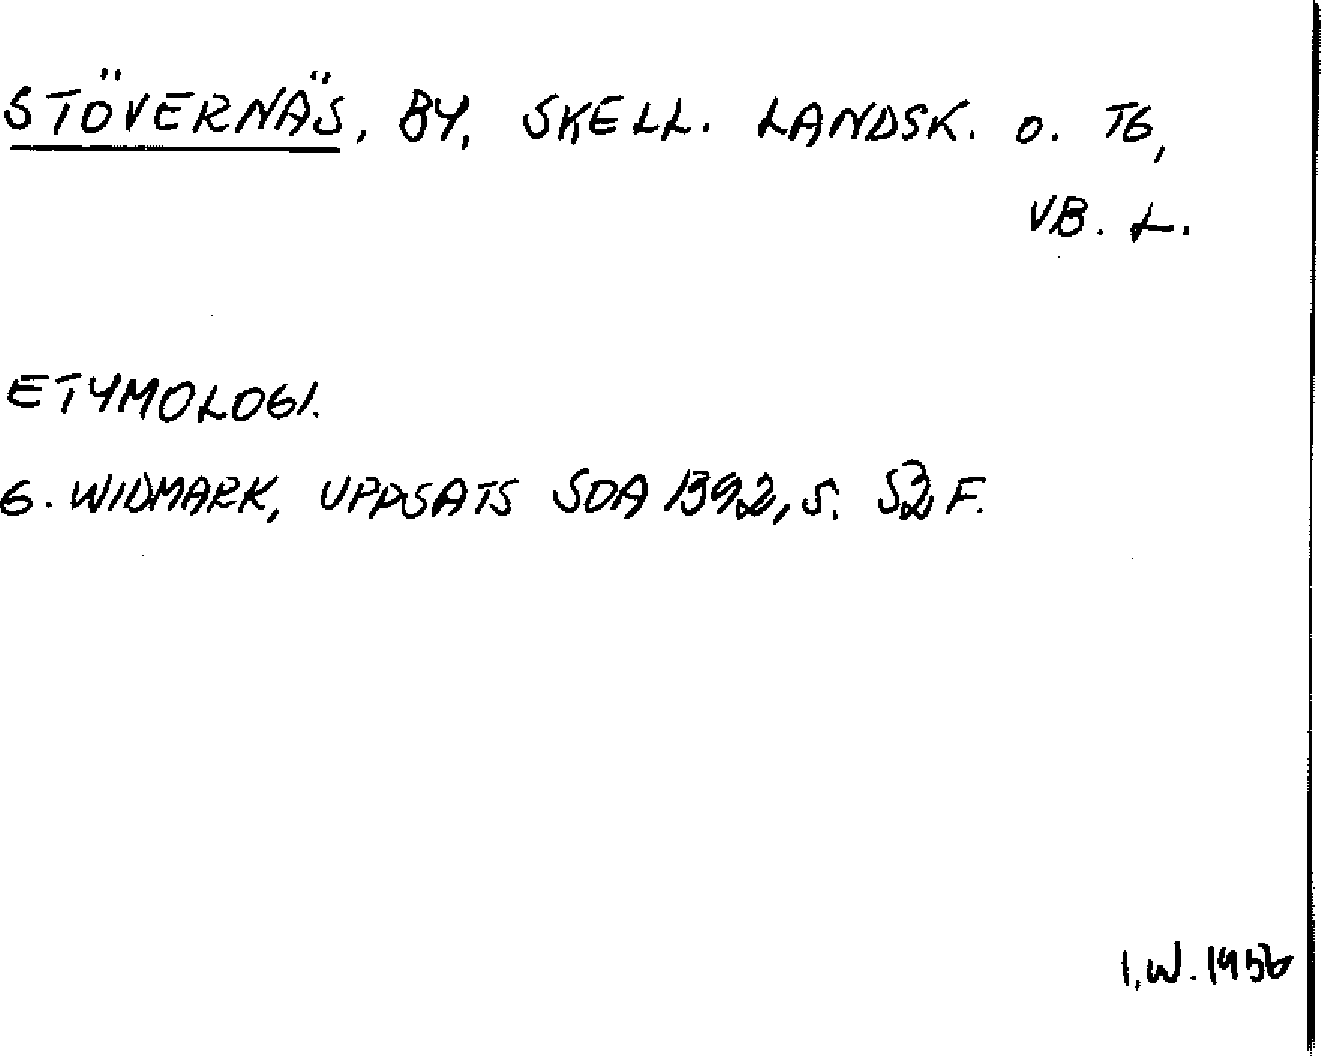 STÖVERNÄS, BY, SKELL. LANDSK. O. TG,
VB. L.
ETYMOLOGI.
G. WIDMARK, UPPSATS SOA 1392, S. 52 F.
I.W. 1956